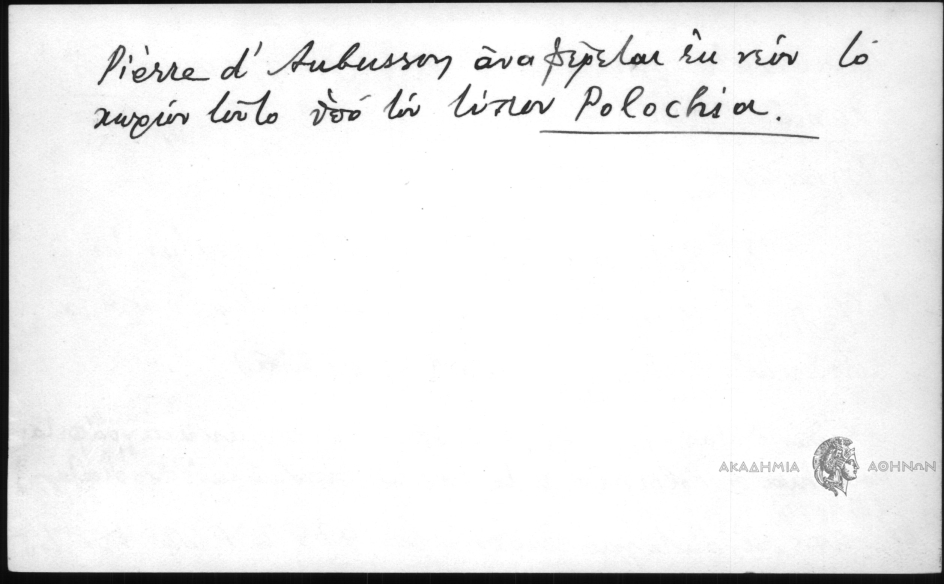 Pièrre d' Aubusson ἀναφέρεται ἐκ νέου τὸ
χωρίον τοῦτο ὑπὸ τὸν τύπον Polochia.
ΑΚΑΔΗΜΙΑ ΑΘΗΝΩΝ